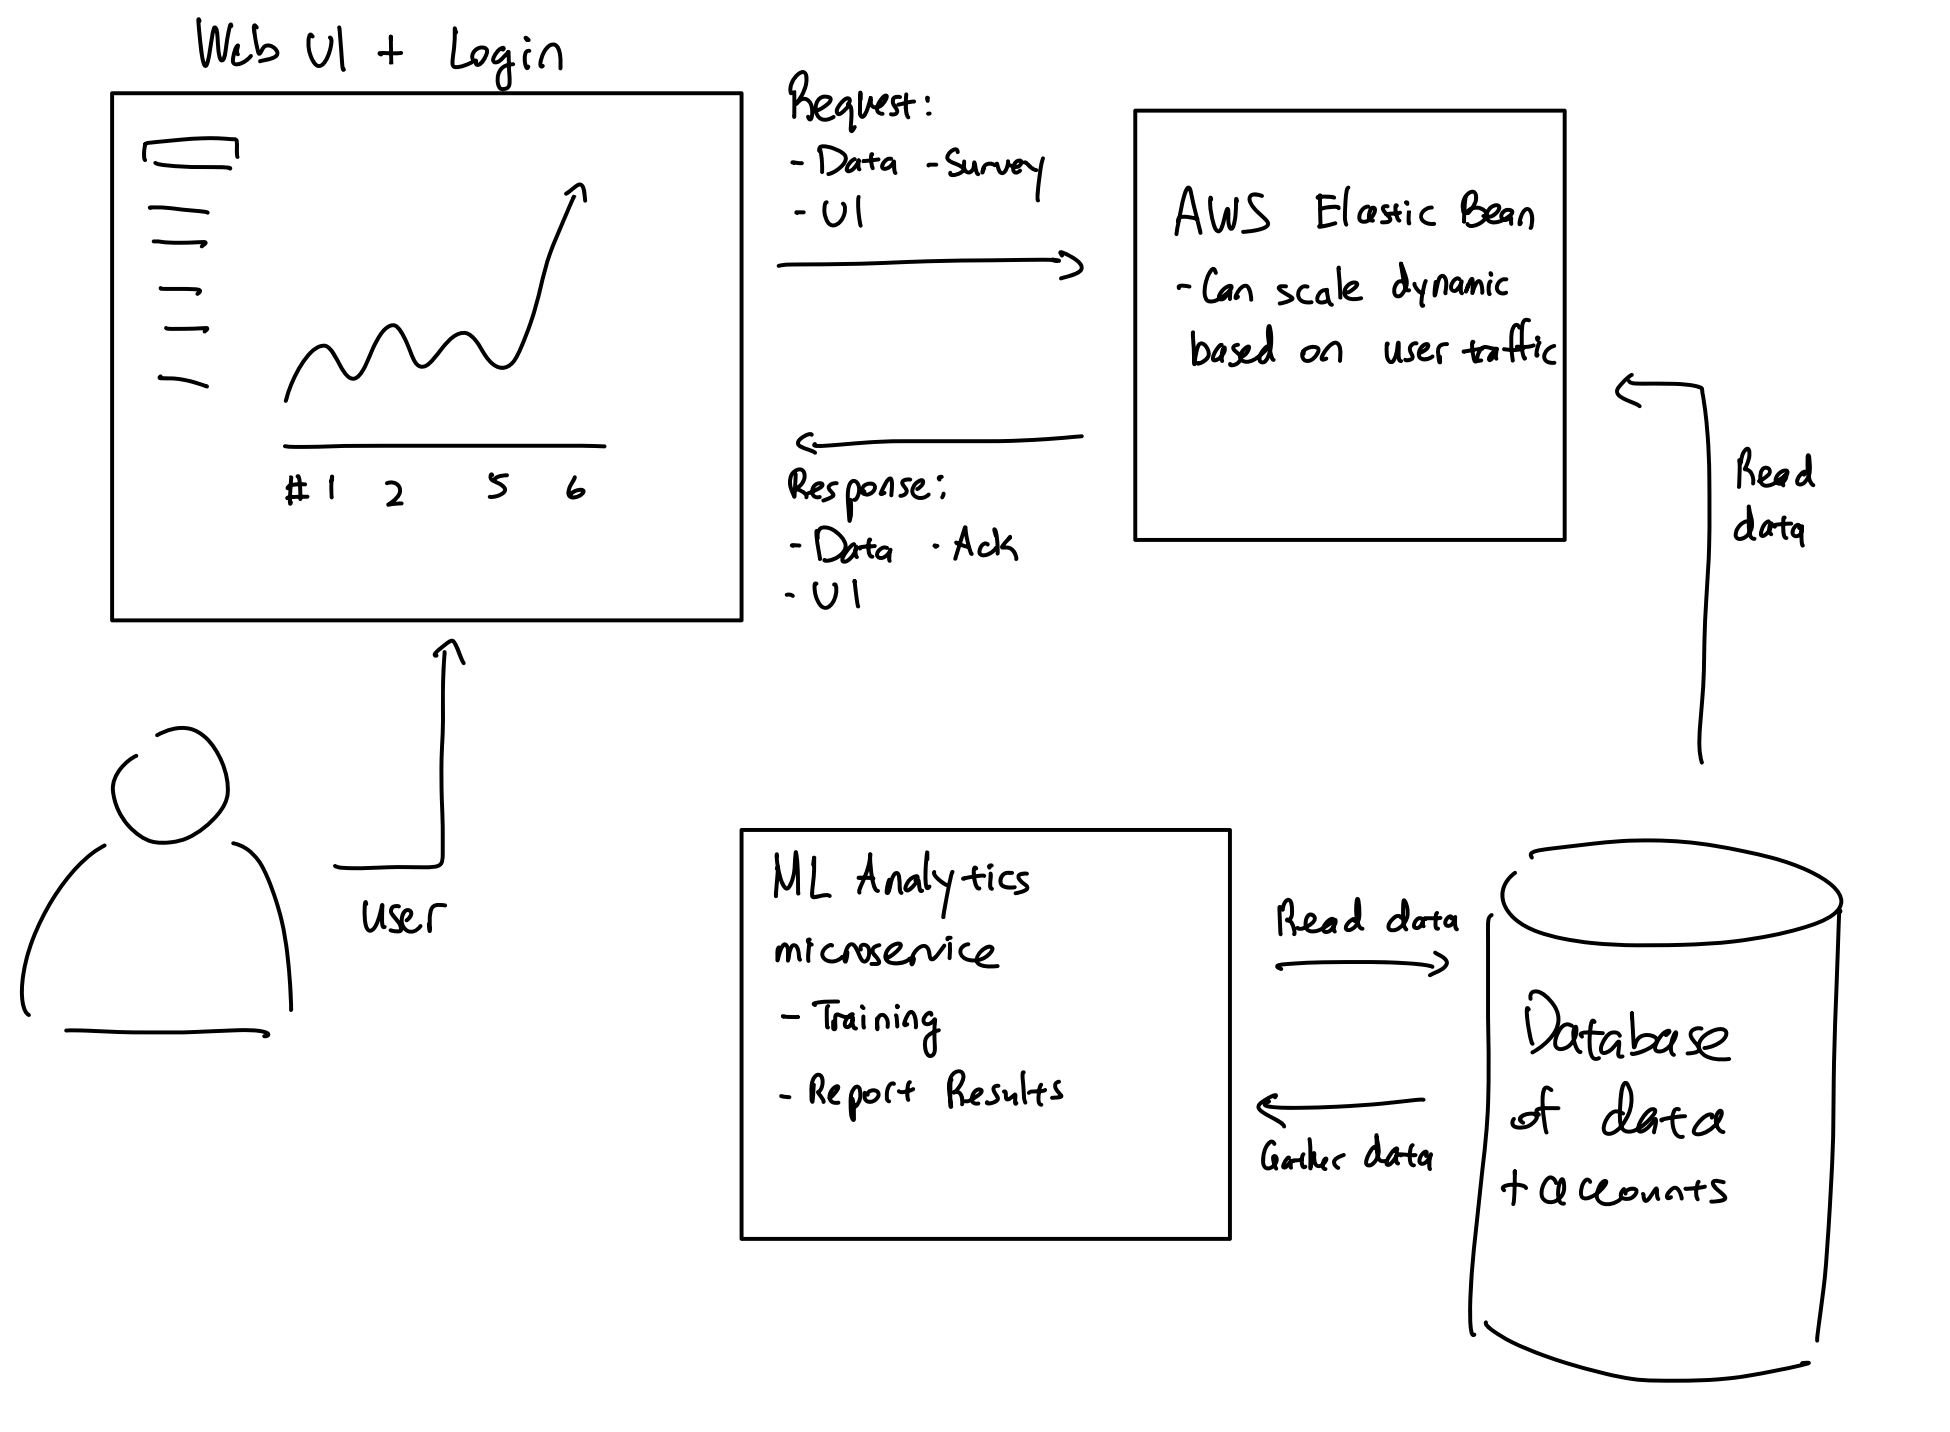 Web UI + Login
# 1 2 5 6
Request:
- Data - Survey
- UI
Response:
- Data · Ack
- UI
AWS Elastic Bean
- Can scale dynamic
based on user traffic
Read
data
user
ML Analytics
microservice
- Training
- Report Results
Read data
Gather data
Database
of data
+ accounts